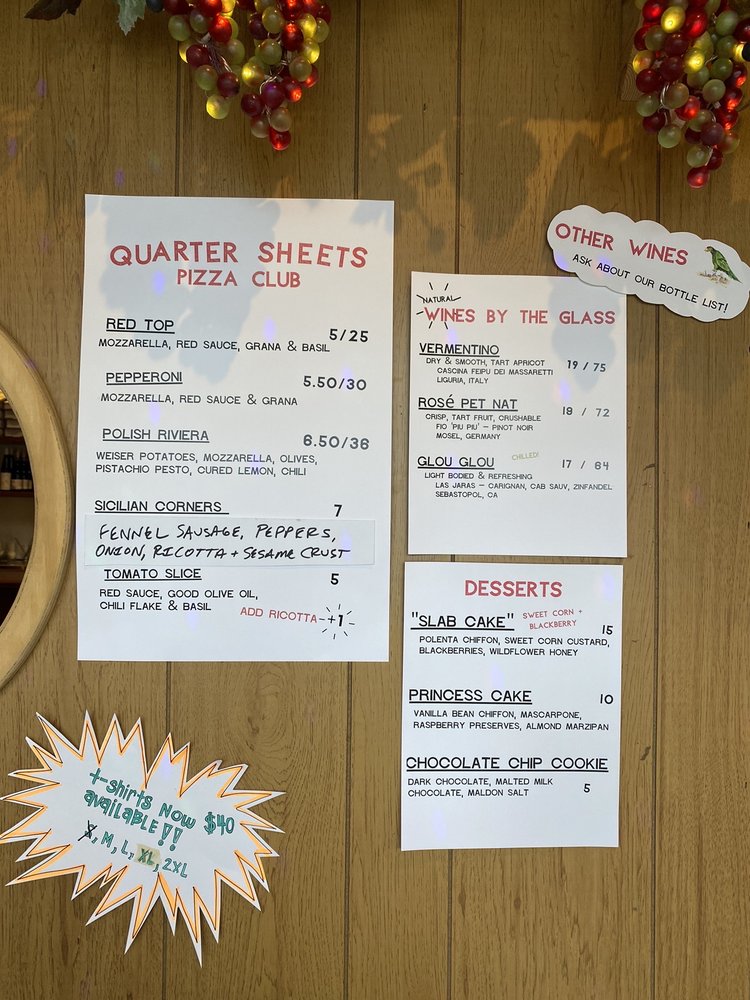 QUARTER SHEETS
PIZZA CLUB
RED TOP 5/25
MOZZARELLA, RED SAUCE, GRANA & BASIL
PEPPERONI 5.50/30
MOZZARELLA, RED SAUCE & GRANA
POLISH RIVIERA 6.50/36
WEISER POTATOES, MOZZARELLA, OLIVES,
PISTACHIO PESTO, CURED LEMON, CHILI
SICILIAN CORNERS 7
FENNEL SAUSAGE, PEPPERS,
ONION, RICOTTA + SESAME CRUST
TOMATO SLICE 5
RED SAUCE, GOOD OLIVE OIL,
CHILI FLAKE & BASIL
ADD RICOTTA - +1
OTHER WINES
ASK ABOUT OUR BOTTLE LIST!
NATURAL
WINES BY THE GLASS
VERMENTINO 19 / 75
DRY & SMOOTH, TART APRICOT
CASCINA FEIPU DEI MASSARETTI
LIGURIA, ITALY
ROSé PET NAT 18 / 72
CRISP, TART FRUIT, CRUSHABLE
FIO 'PIU PIU' - PINOT NOIR
MOSEL, GERMANY
GLOU GLOU CHILLED! 17 / 64
LIGHT BODIED & REFRESHING
LAS JARAS - CARIGNAN, CAB SAUV, ZINFANDEL
SEBASTOPOL, CA
DESSERTS
"SLAB CAKE" SWEET CORN + 15
BLACKBERRY
POLENTA CHIFFON, SWEET CORN CUSTARD,
BLACKBERRIES, WILDFLOWER HONEY
PRINCESS CAKE 10
VANILLA BEAN CHIFFON, MASCARPONE,
RASPBERRY PRESERVES, ALMOND MARZIPAN
CHOCOLATE CHIP COOKIE
DARK CHOCOLATE, MALTED MILK 5
CHOCOLATE, MALDON SALT
t-shirts NOW $40
available!!
S, M, L, XL, 2XL